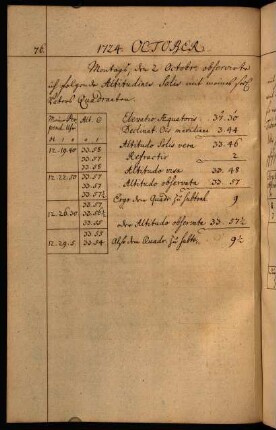 76. 1724 OCTOBER
Montags, den 2 Octobr. observirte
ich folgende Altitudines Solis mit meines
Vaters Quadranten.
Alt. ☉
Elevatio Æquatoris 37. 30
Declinat. ☉is meridiana 3. 44
H ' " ° '
12. 19. 45 33. 58 Altitudo Solis vera 33. 46
33. 58 Refractio 2
33. 57 Altitudo vera 33. 48
12. 22. 50 33. 57 Altitudo observata 33. 57
33. 57½
33. 57 Ergo dem Quadr. zu subtrah. 9
12. 26. 30 33. 56½
33. 55 oder Altitudo observata 33. 57½
33. 55
12. 29. 5 33. 54 Also dem Quadr. zu subtr. 9½